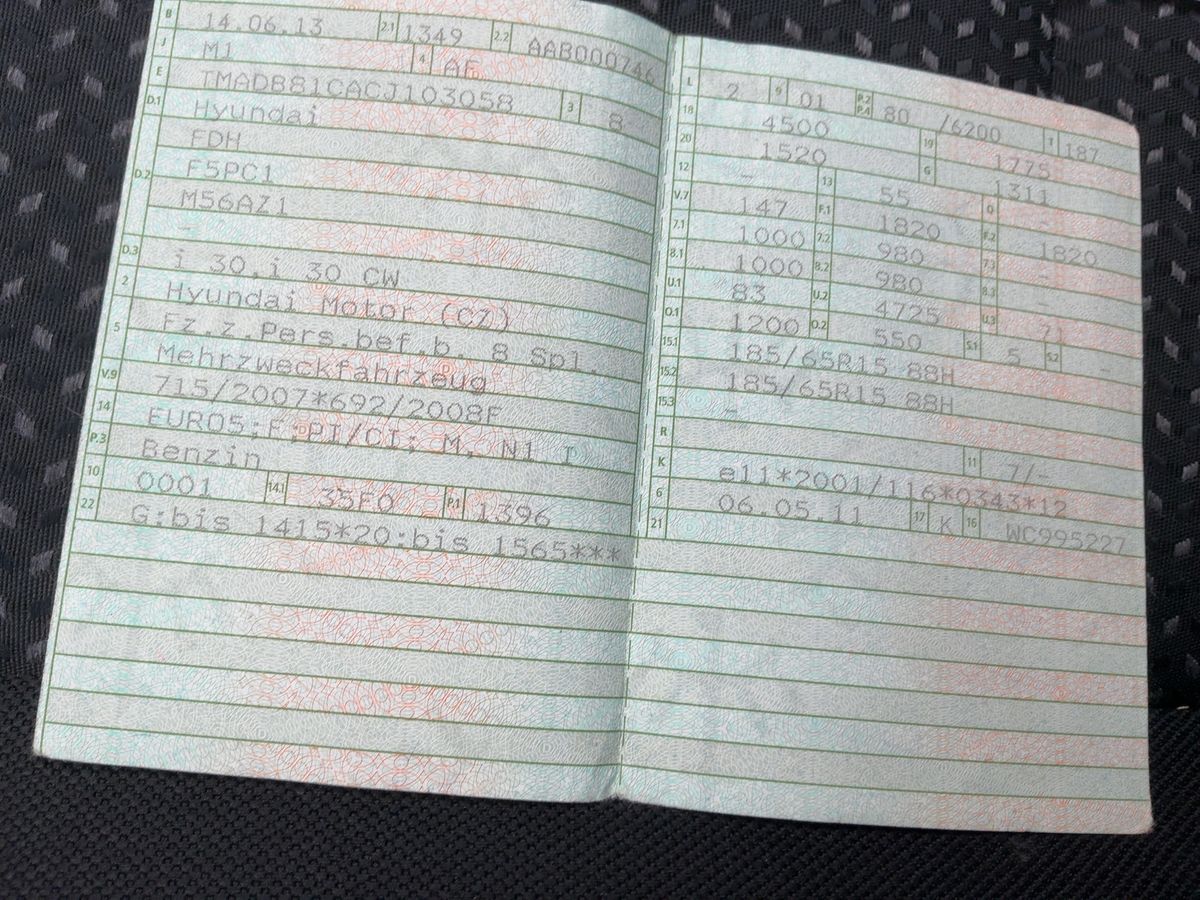 B 14.06.13 2.1 1349 2.2 AAB000746
J M1 4 AF
E TMADB81CACJ103058 3 8
D.1 Hyundai
D.2 FDH
F5PC1
M56AZ1
-
D.3 i 30,i 30 CW
2 Hyundai Motor (CZ)
5 Fz.z.Pers.bef.b. 8 Spl.
Mehrzweckfahrzeug
V.9 715/2007*692/2008F
14 EURO5;F;PI/CI; M, N1 I
P.3 Benzin
10 0001 14.1 35F0 P.1 1396
22 G:bis 1415*20:bis 1565***
L 2 9 01 P.2 P.4 80 /6200 T 187
18 4500 19 1775
20 1520 G 1311
12 - 13 55 Q -
V.7 147 F.1 1820 F.2 1820
7.1 1000 7.2 980 7.3 -
8.1 1000 8.2 980 8.3
U.1 83 U.2 4725 U.3 71
O.1 1200 O.2 550 S.1 5 S.2 -
15.1 185/65R15 88H
15.2 185/65R15 88H
15.3 -
R 11 7/-
K e11*2001/116*0343*12
6 06.05.11 17 K 16 WC995227
21